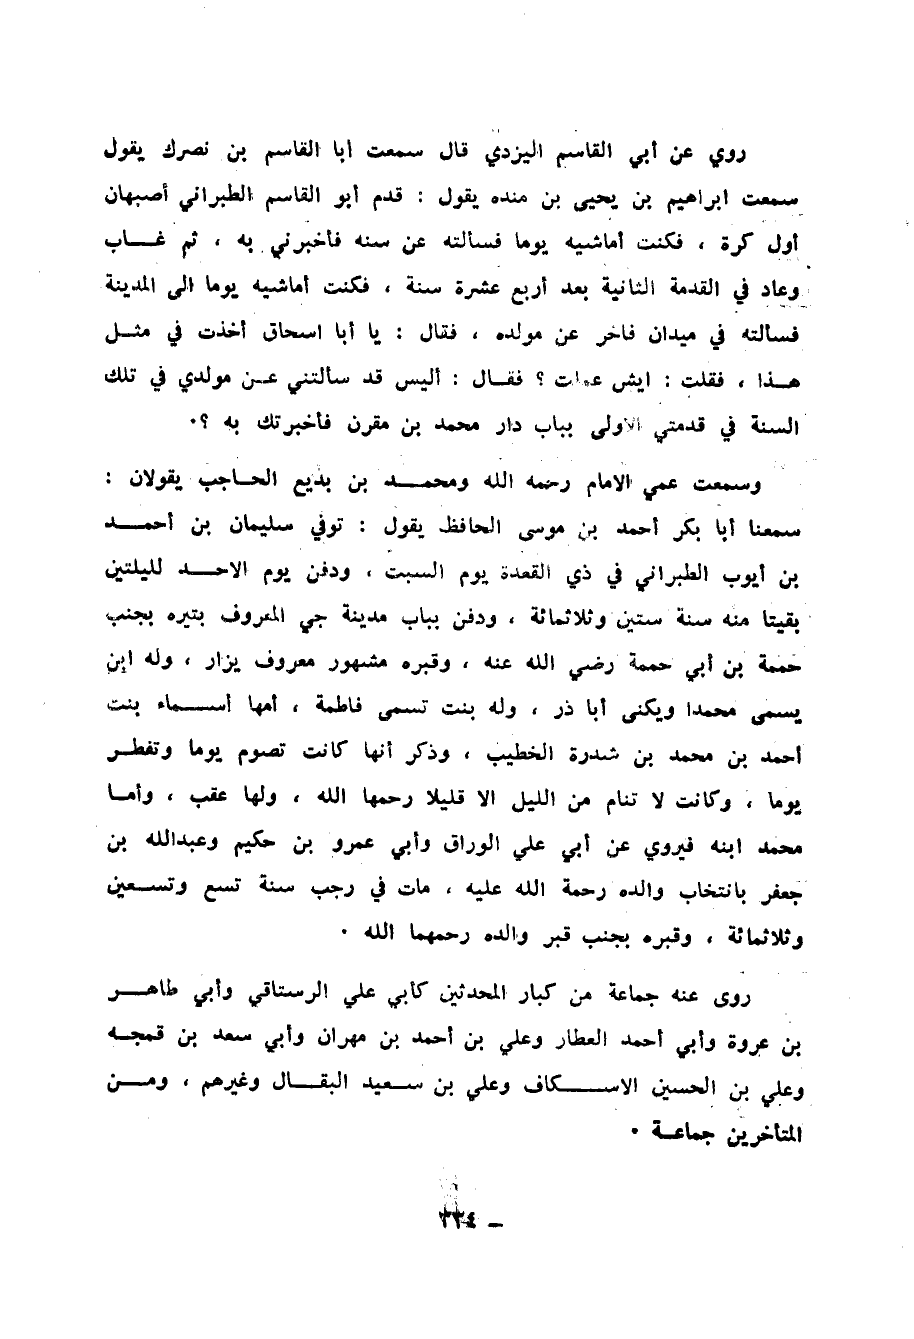 روي عن أبي القاسم اليزدي قال سمعت أبا القاسم بن نصرك يقول
سمعت ابراهيم بن يحيى بن منده يقول : قدم أبو القاسم الطبراني أصبهان
أول كرة ، فكنت أماشيه يوما فسألته عن سنه فأخبرني به ، ثم غـاب
وعاد في القدمة الثانية بعد أربع عشرة سنة ، فكنت أماشيه يوما الى المدينة
فسألته في ميدان فاخر عن مولده ، فقال : يا أبا اسحاق أخذت في مثـل
هـذا ، فقلت : ايش ؟ فقـال : أليس قد سألتني عـن مولدي في تلك
السنة في قدمتي الاولى بباب دار محمد بن مقرن فأخبرتك به ؟٠
وسمعت عمي الامام رحمه الله ومحمـد بن بديع الحـاجب يقولان :
سمعنا أبا بكر أحمد بن موسى الحافظ يقول : توفي سليمان بن أحمـد
بن أيوب الطبراني في ذي القعدة يوم السبت ، ودفن يوم الاحـد لليلتين
بقيتا منه سنة ستين وثلاثمائة ، ودفن بباب مدينة جي المعروف بتيره بجنب
حممة بن أبي حممة رضي الله عنه ، وقبره مشهور معروف يزار ، وله ابن
يسمى محمدا ويكنى أبا ذر ، وله بنت تسمى فاطمة ، أمها أسـماء بنت
أحمد بن محمد بن شدرة الخطيب ، وذكر أنها كانت تصوم يوما وتفطـر
يوما ، وكانت لا تنام من الليل الا قليلا رحمها الله ، ولها عقب ، وأمـا
محمد ابنه فيروي عن أبي علي الوراق وأبي عمرو بن حكيم وعبدالله بن
جعفر بانتخاب والده رحمة الله عليه ، مات في رجب سنة تسع وتسـعين
وثلاثمائة ، وقبره بجنب قبر والده رحمهما الله ٠
روى عنه جماعة من كبار المحدثين كأبي علي الرستاقي وأبي طاهـر
بن عروة وأبي أحمد العطار وعلي بن أحمد بن مهران وأبي سعد بن قمجـه
وعلي بن الحسين الاسـكاف وعلي بن سـعيد البقـال وغيرهم ، ومـن
المتأخرين جماعـة ٠
– ٣٣٤